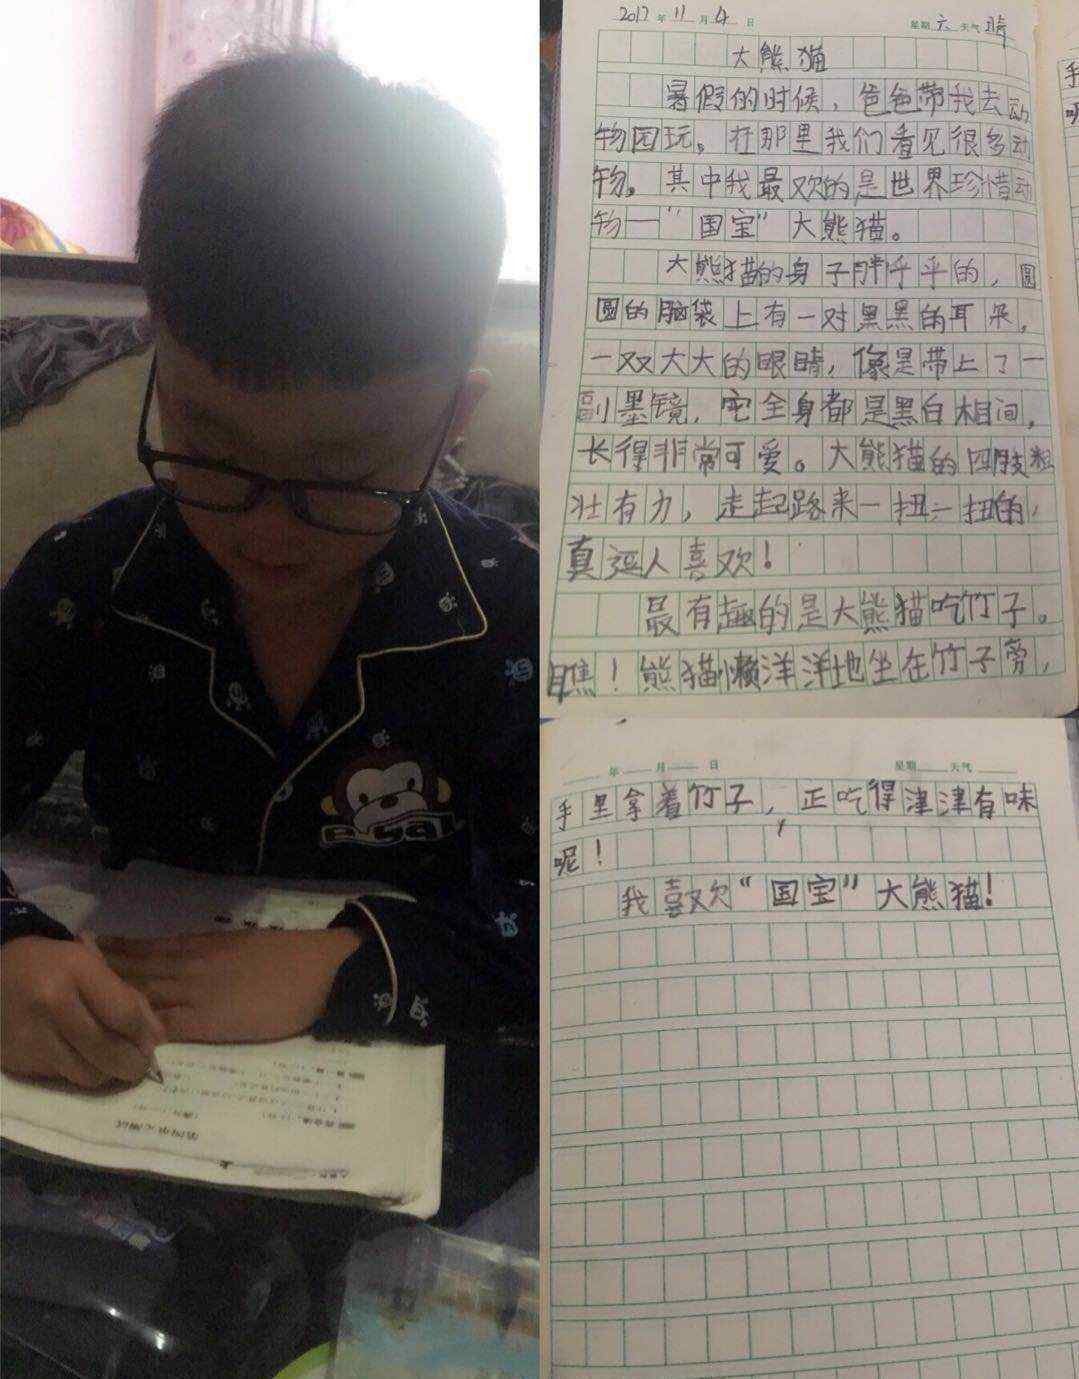 2017年11月4日 星期六 天气晴
大熊猫
暑假的时候，爸爸带我去动
物园玩。在那里我们看见很多动
物。其中我最欢的是世界珍惜动
物一“国宝”大熊猫。
大熊猫的身子胖乎乎的，圆
圆的脑袋上有一对黑黑的耳朵，
一双大大的眼睛，像是带上了一
副墨镜，它全身都是黑白相间，
长得非常可爱。大熊猫的四肢粗
壮有力，走起路来一扭一扭的，
真逗人喜欢！
最有趣的是大熊猫吃竹子。
瞧！熊猫懒洋洋地坐在竹子旁，
年 月 日 星期 天气
手里拿着竹子，正吃得津津有味
呢！
我喜欢“国宝”大熊猫！